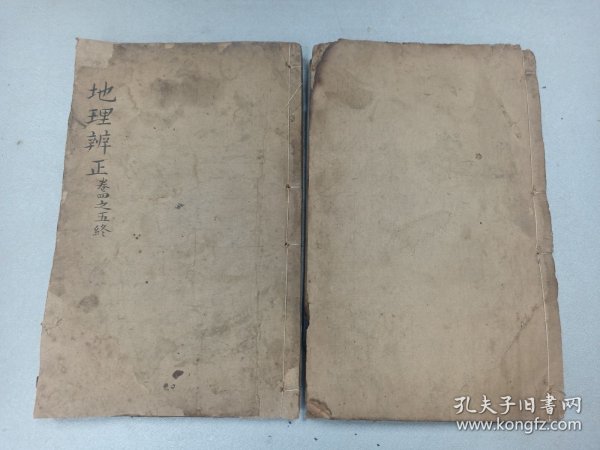 地理辨正卷四之五終
孔夫子旧书网
www.kongfz.com